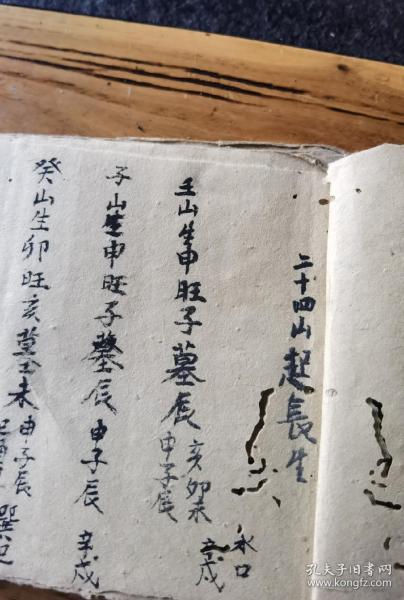 二十四山起長生
水口
壬山生申旺子墓辰 亥卯未
申子辰 辛戍
子山生申旺子墓辰 申子辰 辛戍
癸山生卯旺亥墓未 申子辰
巽
孔夫子旧书网
www.kongfz.com